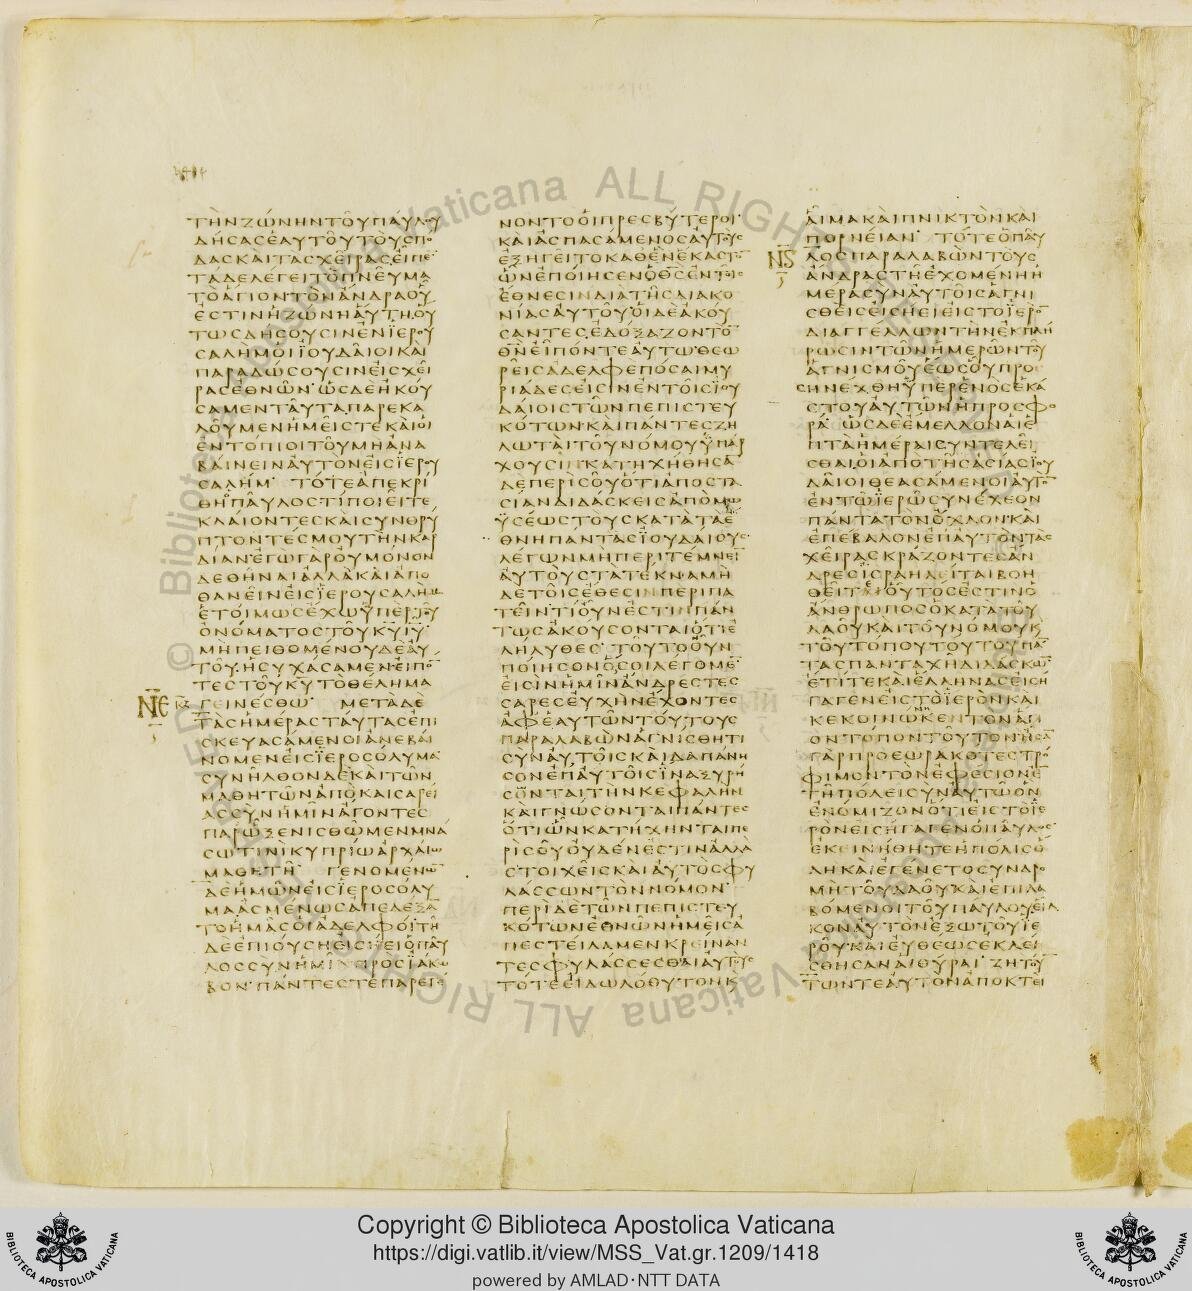 ΤΗΝ ΖΩΝΗΝ ΤΟΥ ΠΑΥΛΟΥ
ΔΗϹΑϹ ΕΑΥΤΟΥ ΤΟΥϹ ΠΟ
ΔΑϹ ΚΑΙ ΤΑϹ ΧΕΙΡΑϹ ΕΙΠΕ̅
ΤΑΔΕ ΛΕΓΕΙ ΤΟ ΠΝΕΥΜΑ
ΤΟ ΑΓΙΟΝ ΤΟΝ ΑΝΔΡΑ ΟΥ
ΕϹΤΙΝ Η ΖΩΝΗ ΑΥΤΗ ΟΥ
ΤΩϹ ΔΗϹΟΥϹΙΝ ΕΝ ΪΕΡΟΥ
ϹΑΛΗΜ ΟΙ ΪΟΥΔΑΙΟΙ ΚΑΙ
ΠΑΡΑΔΩϹΟΥϹΙΝ ΕΙϹ ΧΕΙ
ΡΑϹ ΕΘΝΩΝ· ΩϹ ΔΕ ΗΚΟΥ
ϹΑΜΕΝ ΤΑΥΤΑ ΠΑΡΕΚΑ
ΛΟΥΜΕΝ ΗΜΕΙϹ ΤΕ ΚΑΙ ΟΙ
ΕΝΤΟΠΙΟΙ ΤΟΥ ΜΗ ΑΝΑ
ΒΑΙΝΕΙΝ ΑΥΤΟΝ ΕΙϹ ΪΕΡΟΥ
ϹΑΛΗΜ· ΤΟΤΕ ΑΠΕΚΡΙ
ΘΗ Ο ΠΑΥΛΟϹ ΤΙ ΠΟΙΕΙΤΕ
ΚΛΑΙΟΝΤΕϹ ΚΑΙ ϹΥΝΘΡΥ
ΠΤΟΝΤΕϹ ΜΟΥ ΤΗΝ ΚΑΡ
ΔΙΑΝ ΕΓΩ ΓΑΡ ΟΥ ΜΟΝΟΝ
ΔΕΘΗΝΑΙ ΑΛΛΑ ΚΑΙ ΑΠΟ
ΘΑΝΕΙΝ ΕΙϹ ΪΕΡΟΥϹΑΛΗΜ
ΕΤΟΙΜΩϹ ΕΧΩ ΫΠΕΡ ΤΟΥ
ΟΝΟΜΑΤΟϹ ΤΟΥ Κ̅Υ̅ Ι̅Υ̅·
ΜΗ ΠΕΙΘΟΜΕΝΟΥ ΔΕ ΑΥ
ΤΟΥ ΗϹΥΧΑϹΑΜΕΝ ΕΙΠΟ̅
ΤΕϹ ΤΟΥ Κ̅Υ̅ ΤΟ ΘΕΛΗΜΑ
Ν̅Ε̅ ΓΕΙΝΕϹΘΩ ΜΕΤΑ ΔΕ
ΤΑϹ ΗΜΕΡΑϹ ΤΑΥΤΑϹ ΕΠΙ
ϹΚΕΥΑϹΑΜΕΝΟΙ ΑΝΕΒΑΙ
ΝΟΜΕΝ ΕΙϹ ΪΕΡΟϹΟΛΥΜΑ
ϹΥΝΗΛΘΟΝ ΔΕ ΚΑΙ ΤΩΝ
ΜΑΘΗΤΩΝ ΑΠΟ ΚΑΙϹΑΡΕΙ
ΑϹ ϹΥΝ ΗΜΙΝ ΑΓΟΝΤΕϹ
ΠΑΡ Ω ΞΕΝΙϹΘΩΜΕΝ ΜΝΑ
ϹΩΤΙΝΙ ΚΥΠΡΙΩ ΑΡΧΑΙΩ
ΜΑΘΗΤΗ ΓΕΝΟΜΕΝΩ̅
ΔΕ ΗΜΩΝ ΕΙϹ ΪΕΡΟϹΟΛΥ
ΜΑ ΑϹΜΕΝΩϹ ΑΠΕΔΕΞΑ̅
ΤΟ ΗΜΑϹ ΟΙ ΑΔΕΛΦΟΙ ΤΗ
ΔΕ ΕΠΙΟΥϹΗ ΕΙϹΗΕΙ Ο ΠΑΥ
ΛΟϹ ϹΥΝ ΗΜΙΝ ΠΡΟϹ ΪΑΚΩ
ΒΟΝ· ΠΑΝΤΕϹ ΤΕ ΠΑΡΕΓΕ
ΝΟΝΤΟ ΟΙ ΠΡΕϹΒΥΤΕΡΟΙ·
ΚΑΙ ΑϹΠΑϹΑΜΕΝΟϹ ΑΥΤΟΥϹ
ΕΞΗΓΕΙΤΟ ΚΑΘ ΕΝ ΕΚΑϹΤΟ̅
ΩΝ ΕΠΟΙΗϹΕΝ Ο Θ̅Ϲ̅ ΕΝ ΤΟΙϹ
ΕΘΝΕϹΙΝ ΔΙΑ ΤΗϹ ΔΙΑΚΟ
ΝΙΑϹ ΑΥΤΟΥ ΟΙ ΔΕ ΑΚΟΥ
ϹΑΝΤΕϹ ΕΔΟΞΑΖΟΝ ΤΟ̅
Θ̅Ν̅ ΕΙΠΟΝ ΤΕ ΑΥΤΩ ΘΕΩ
ΡΕΙϹ ΑΔΕΛΦΕ ΠΟϹΑΙ ΜΥ
ΡΙΑΔΕϹ ΕΙϹΙΝ ΕΝ ΤΟΙϹ ΪΟΥ
ΔΑΙΟΙϹ ΤΩΝ ΠΕΠΙϹΤΕΥ
ΚΟΤΩΝ· ΚΑΙ ΠΑΝΤΕϹ ΖΗ
ΛΩΤΑΙ ΤΟΥ ΝΟΜΟΥ ΫΠΑΡ
ΧΟΥϹΙΝ ΚΑΤΗΧΗΘΗϹΑ̅
ΔΕ ΠΕΡΙ ϹΟΥ ΟΤΙ ΑΠΟϹΤΑ
ϹΙΑΝ ΔΙΔΑϹΚΕΙϹ ΑΠΟ ΜΩ
ΫϹΕΩϹ ΤΟΥϹ ΚΑΤΑ ΤΑ Ε
ΘΝΗ ΠΑΝΤΑϹ ΪΟΥΔΑΙΟΥϹ
ΛΕΓΩΝ ΜΗ ΠΕΡΙΤΕΜΝΕΙ̅
ΑΥΤΟΥϹ ΤΑ ΤΕΚΝΑ ΜΗ
ΔΕ ΤΟΙϹ ΕΘΕϹΙΝ ΠΕΡΙΠΑ
ΤΕΙΝ ΤΙ ΟΥΝ ΕϹΤΙΝ ΠΑΝ
ΤΩϹ ΑΚΟΥϹΟΝΤΑΙ ΟΤΙ Ε
ΛΗΛΥΘΕϹ· ΤΟΥΤΟ ΟΥΝ
ΠΟΙΗϹΟΝ Ο ϹΟΙ ΛΕΓΟΜΕ̅
ΕΙϹΙΝ ΗΜΙΝ ΑΝΔΡΕϹ ΤΕϹ
ϹΑΡΕϹ ΕΥΧΗΝ ΕΧΟΝΤΕϹ
ΑΦ ΕΑΥΤΩΝ ΤΟΥΤΟΥϹ
ΠΑΡΑΛΑΒΩΝ ΑΓΝΙϹΘΗΤΙ
ϹΥΝ ΑΥΤΟΙϹ ΚΑΙ ΔΑΠΑΝΗ
ϹΟΝ ΕΠ ΑΥΤΟΙϹ ΪΝΑ ΞΥΡΗ
ϹΟΝΤΑΙ ΤΗΝ ΚΕΦΑΛΗΝ
ΚΑΙ ΓΝΩϹΟΝΤΑΙ ΠΑΝΤΕϹ
ΟΤΙ ΩΝ ΚΑΤΗΧΗΝΤΑΙ ΠΕ
ΡΙ ϹΟΥ ΟΥΔΕΝ ΕϹΤΙΝ ΑΛΛΑ
ϹΤΟΙΧΕΙϹ ΚΑΙ ΑΥΤΟϹ ΦΥ
ΛΑϹϹΩΝ ΤΟΝ ΝΟΜΟΝ·
ΠΕΡΙ ΔΕ ΤΩΝ ΠΕΠΙϹΤΕΥ
ΚΟΤΩΝ ΕΘΝΩΝ ΗΜΕΙϹ Α
ΠΕϹΤΕΙΛΑΜΕΝ ΚΡΕΙΝΑΝ
ΤΕϹ ΦΥΛΑϹϹΕϹΘΑΙ ΑΥΤΟΥϹ
ΤΟ ΤΕ ΕΙΔΩΛΟΘΥΤΟΝ Κ
ΑΙΜΑ ΚΑΙ ΠΝΙΚΤΟΝ ΚΑΙ
ΠΟΡΝΕΙΑΝ· ΤΟΤΕ Ο ΠΑΥ
Ν̅Ϛ̅ ΛΟϹ ΠΑΡΑΛΑΒΩΝ ΤΟΥϹ
ΑΝΔΡΑϹ ΤΗ ΕΧΟΜΕΝΗ Η
ΜΕΡΑ ϹΥΝ ΑΥΤΟΙϹ ΑΓΝΙ
ϹΘΕΙϹ ΕΙϹΗΕΙ ΕΙϹ ΤΟ ΪΕΡΟ̅
ΔΙΑΓΓΕΛΛΩΝ ΤΗΝ ΕΚΠΛΗ
ΡΩϹΙΝ ΤΩΝ ΗΜΕΡΩΝ ΤΟΥ
ΑΓΝΙϹΜΟΥ ΕΩϹ ΟΥ ΠΡΟ
ϹΗΝΕΧΘΗ ΫΠΕΡ ΕΝΟϹ ΕΚΑ
ϹΤΟΥ ΑΥΤΩΝ Η ΠΡΟϹΦΟ
ΡΑ· ΩϹ ΔΕ ΕΜΕΛΛΟΝ ΑΙ Ε
ΠΤΑ ΗΜΕΡΑΙ ϹΥΝΤΕΛΕΙ
ϹΘΑΙ ΟΙ ΑΠΟ ΤΗϹ ΑϹΙΑϹ ΪΟΥ
ΔΑΙΟΙ ΘΕΑϹΑΜΕΝΟΙ ΑΥΤΟ̅
ΕΝ ΤΩ ΪΕΡΩ ϹΥΝΕΧΕΟΝ
ΠΑΝΤΑ ΤΟΝ ΟΧΛΟΝ· ΚΑΙ
ΕΠΕΒΑΛΟΝ ΕΠ ΑΥΤΟΝ ΤΑϹ
ΧΕΙΡΑϹ ΚΡΑΖΟΝΤΕϹ ΑΝ
ΔΡΕϹ ΪϹΡΑΗΛΕΙΤΑΙ ΒΟΗ
ΘΕΙΤΕ ΟΥΤΟϹ ΕϹΤΙΝ Ο
ΑΝΘΡΩΠΟϹ Ο ΚΑΤΑ ΤΟΥ
ΛΑΟΥ ΚΑΙ ΤΟΥ ΝΟΜΟΥ Κ
ΤΟΥ ΤΟΠΟΥ ΤΟΥΤΟΥ ΠΑ̅
ΤΑϹ ΠΑΝΤΑΧΗ ΔΙΔΑϹΚΩ̅
ΕΤΙ ΤΕ ΚΑΙ ΕΛΛΗΝΑϹ ΕΙϹΗ
ΓΑΓΕΝ ΕΙϹ ΤΟ ΪΕΡΟΝ ΚΑΙ
ΚΕΚΟΙΝΩΚΕΝ ΤΟΝ ΑΓΙ
ΟΝ ΤΟΠΟΝ ΤΟΥΤΟΝ ΗϹΑ̅
ΓΑΡ ΠΡΟΕΩΡΑΚΟΤΕϹ ΤΡΟ
ΦΙΜΟΝ ΤΟΝ ΕΦΕϹΙΟΝ Ε̅
ΤΗ ΠΟΛΕΙ ϹΥΝ ΑΥΤΩ ΟΝ
ΕΝΟΜΙΖΟΝ ΟΤΙ ΕΙϹ ΤΟ ΪΕ
ΡΟΝ ΕΙϹΗΓΑΓΕΝ Ο ΠΑΥΛΟϹ·
ΕΚΕΙΝΗΘΗ ΤΕ Η ΠΟΛΙϹ Ο
ΛΗ ΚΑΙ ΕΓΕΝΕΤΟ ϹΥΝΔΡΟ
ΜΗ ΤΟΥ ΛΑΟΥ ΚΑΙ ΕΠΙΛΑ
ΒΟΜΕΝΟΙ ΤΟΥ ΠΑΥΛΟΥ ΕΙΛ
ΚΟΝ ΑΥΤΟΝ ΕΞΩ ΤΟΥ ΪΕ
ΡΟΥ· ΚΑΙ ΕΥΘΕΩϹ ΕΚΛΕΙ
ϹΘΗϹΑΝ ΑΙ ΘΥΡΑΙ ΖΗΤΟΥ̅
ΤΩΝ ΤΕ ΑΥΤΟΝ ΑΠΟΚΤΕΙ
Copyright © Biblioteca Apostolica Vaticana
https://digi.vatlib.it/view/MSS_Vat.gr.1209/1418
powered by AMLAD·NTT DATA
BIBLIOTECA APOSTOLICA VATICANA
BIBLIOTECA APOSTOLICA VATICANA